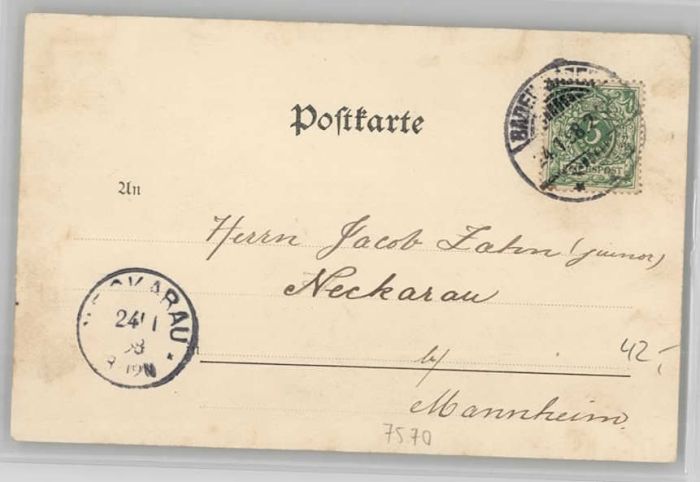 Postkarte
BADEN BADEN
5
REICHSPOST
An
Herrn Jacob Zahn (junior)
Neckarau
NECKARAU
24/1
98
b/
42,-
Mannheim.
7570